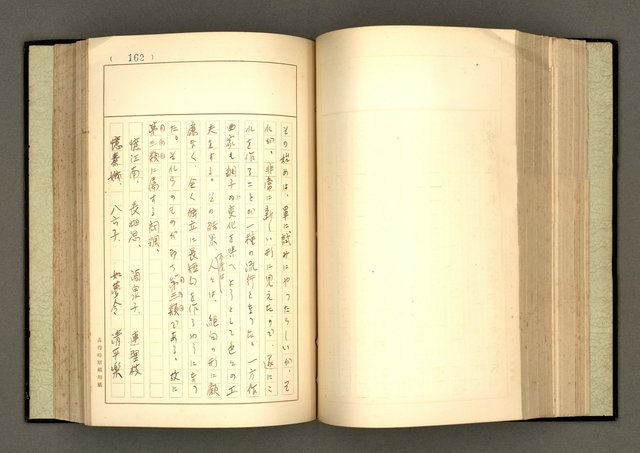 ( 162 )
その始めは、単に試みにやつたらしいが、そ
れが、非常に新しい形に見えたので、遂にこ
れを作ることが一種の流行となつた。一方作
曲家も調子の変化を与へようとして色々の工
夫をする。その結果、人々は、絶句の形に顧
慮なく、全く独立に長短句を作るやうになつ
た。それらのものが即ち第三類である。故に
第三類に属する詞調、
憶江南、長相思、酒泉子、
憶秦娥、八六子、如夢令、清平楽